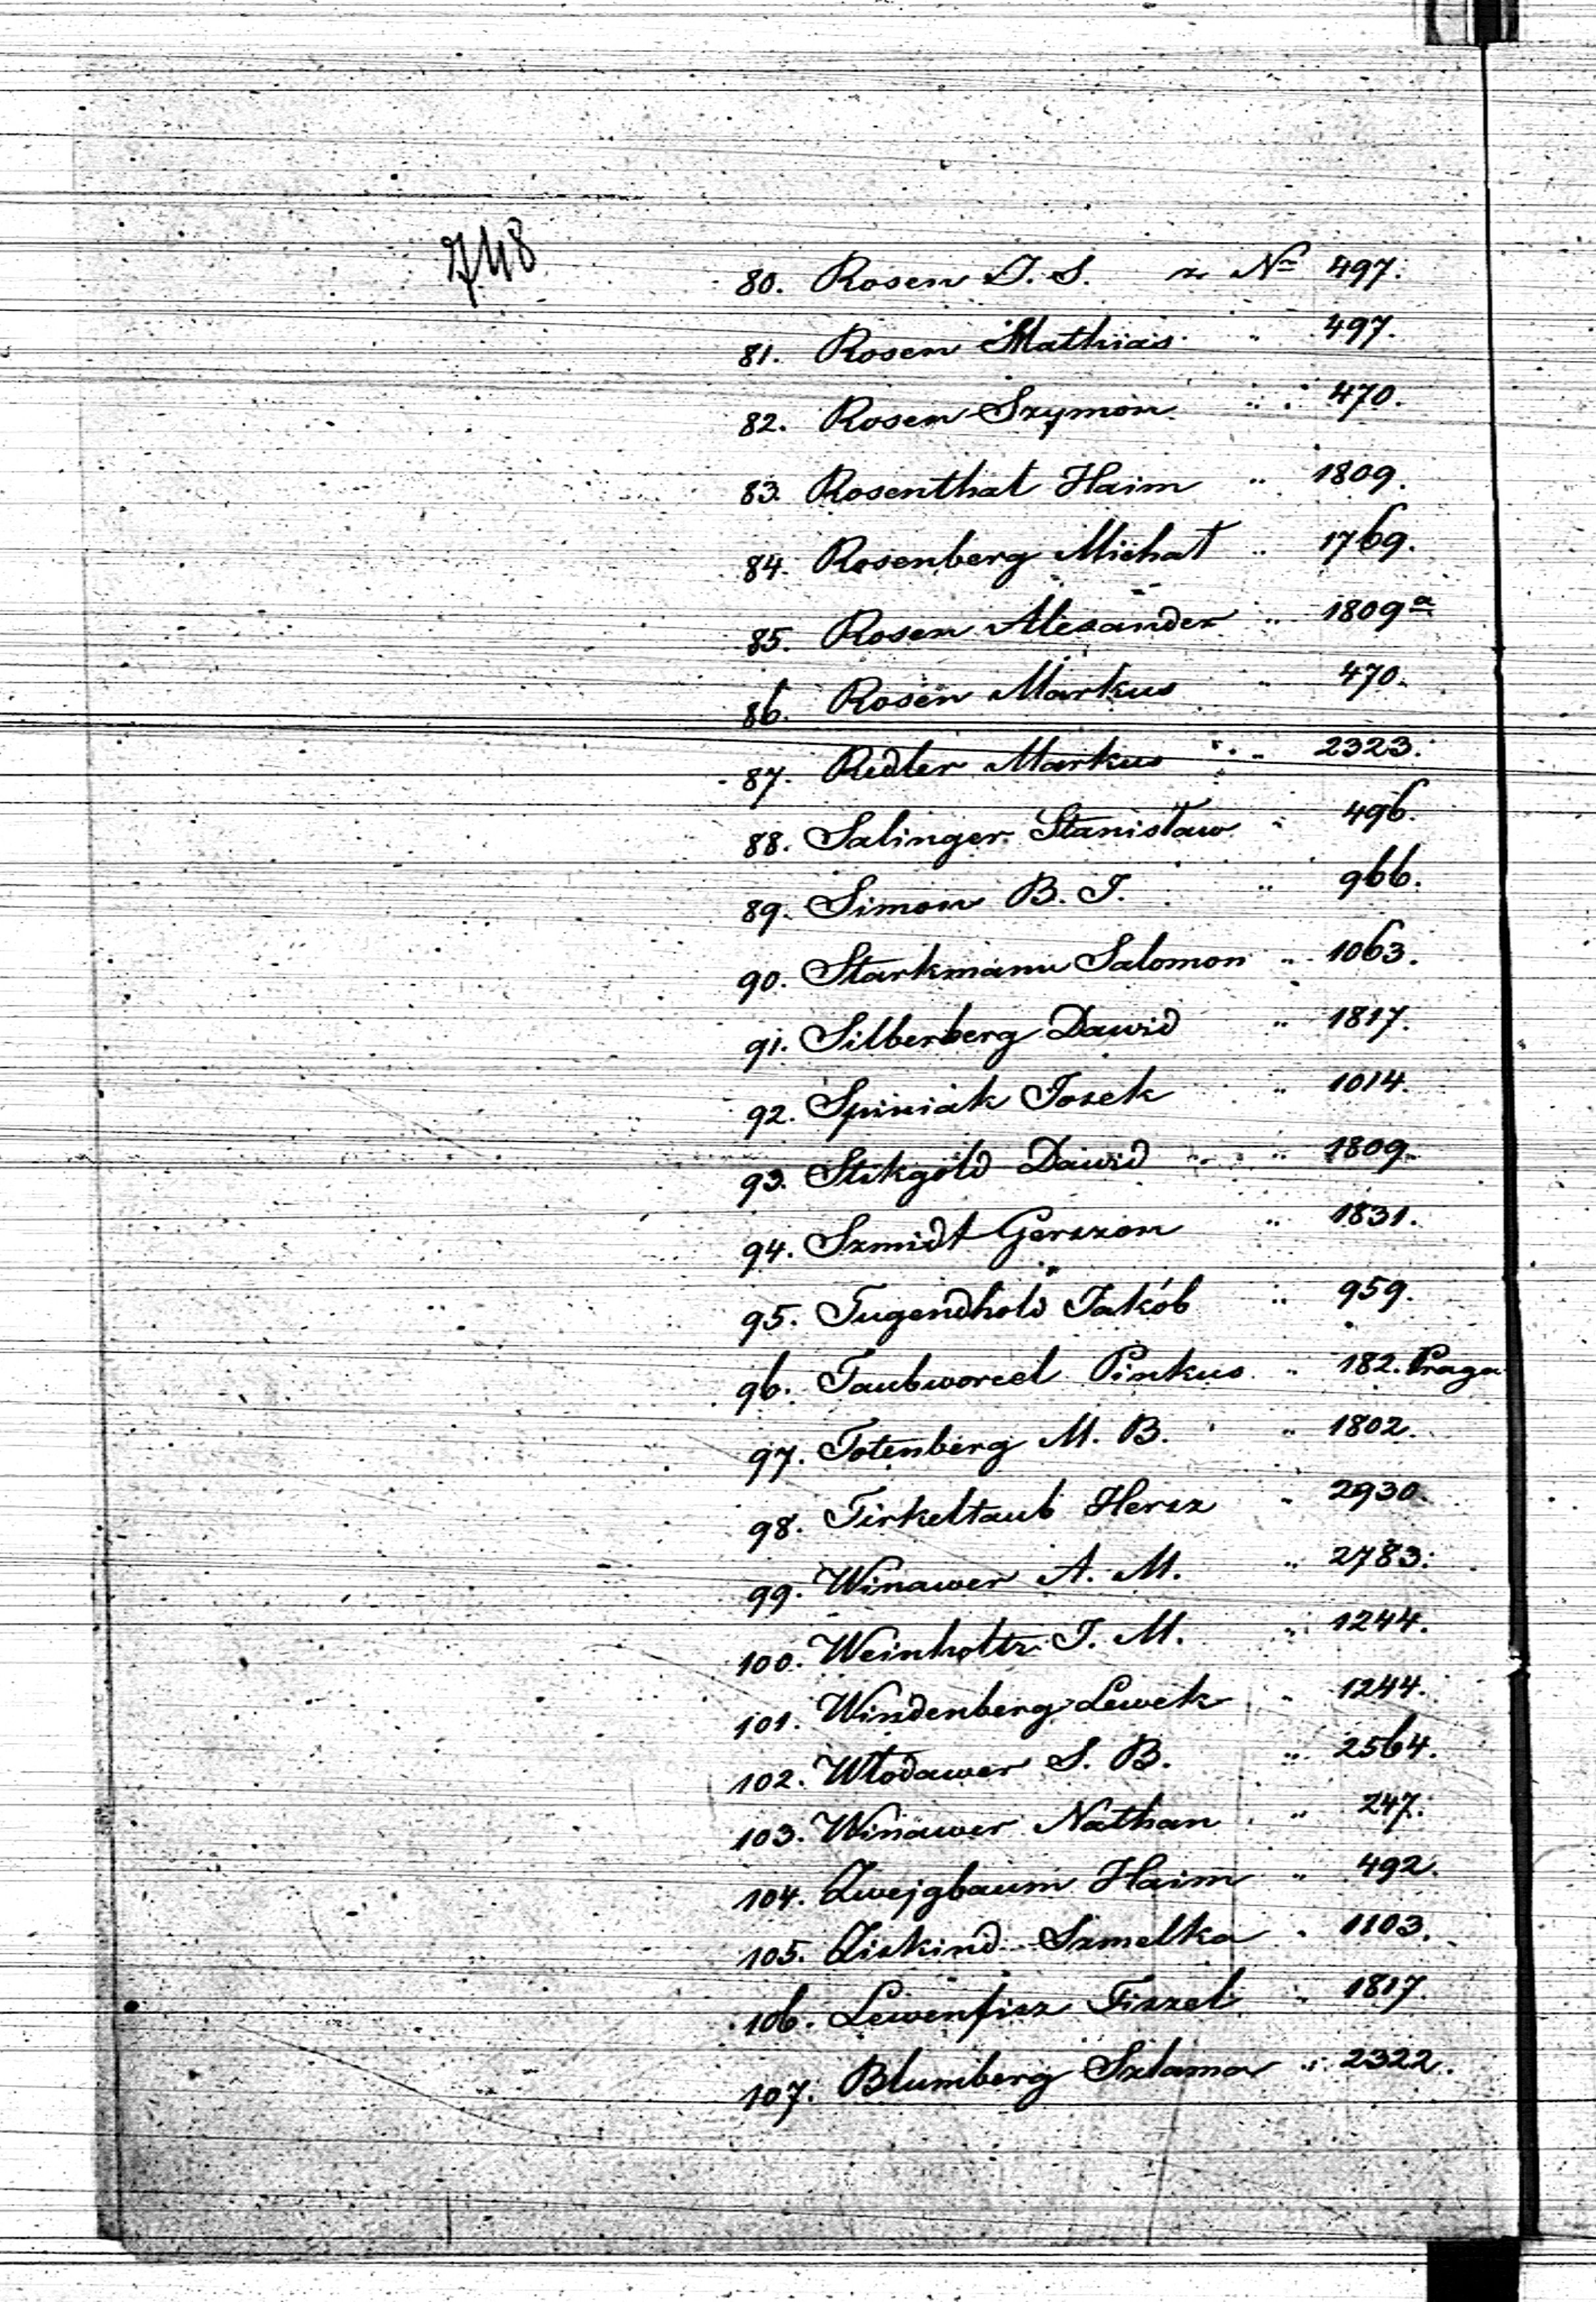 748
80. Rosen D. S. z Nº 497.
81. Rosen Mathias " 497.
82. Rosen Szymon " 470.
83. Rosenthal Haim " 1809.
84. Rosenberg Michał " 1769.
85. Rosen Alexander " 1809 a
86. Rosen Markus " 470.
87. Redler Markus " 2323.
88. Salinger Stanisław " 496.
89. Simon B. I. " 966.
90. Starkmann Salomon " 1063.
91. Silberberg Dawid " 1817.
92. Spiniak Josek " 1014.
93. Stikgold Dawid " 1809.
94. Szmidt Gerszon " 1831.
95. Tugendhold Jakób " 959.
96. Taubworcel Pinkus " 182. Praga
97. Totenberg M. B. " 1802.
98. Tirkeltaub Hersz " 2930.
99. Winawer A. M. " 2783.
100. Weinholtz I. M. " 1244.
101. Windenberg Lewek " 1244.
102. Włodawer S. B. " 2564.
103. Winawer Nathan " 247.
104. Zwejgbaum Haim " 492.
105. Ziskind Szmelka " 1103.
106. Lewenfisz Fiszel " 1817.
107. Blumberg Szlama " 2322.